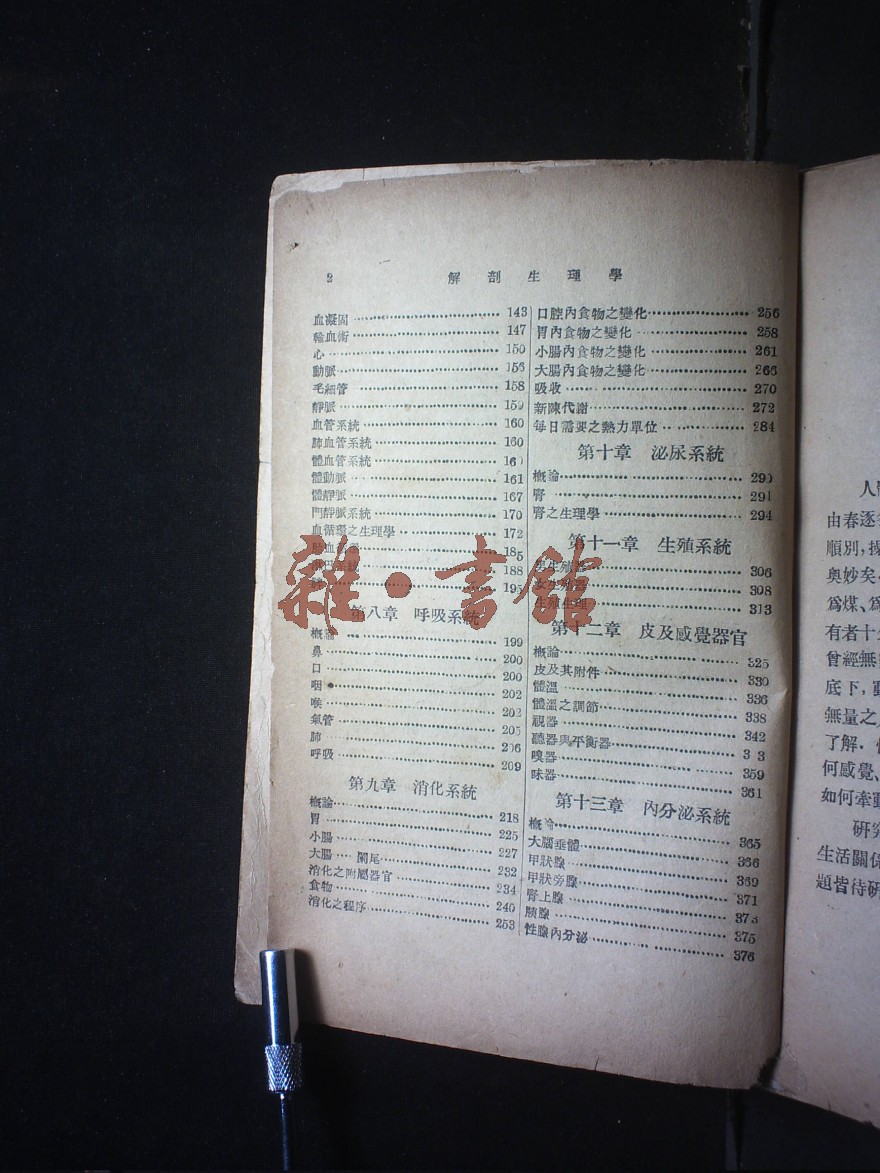 2 解剖生理學
血凝固 143
輸血術 147
心 150
動脈 156
毛細管 158
靜脈 159
血管系統 160
肺血管系統 160
體血管系統 16
體動脈 161
體靜脈 167
門靜脈系統 170
血循環之生理學 172
185
188
脾 195
第八章 呼吸系統
概論 199
鼻 200
口 200
咽 202
喉 202
氣管 205
肺 206
呼吸 209
第九章 消化系統
概論 218
胃 225
小腸 227
大腸 闌尾 232
消化之附屬器官 234
食物 240
消化之程序 253
口腔內食物之變化 256
胃內食物之變化 258
小腸內食物之變化 261
大腸內食物之變化 266
吸收 270
新陳代謝 272
每日需要之熱力單位 284
第十章 泌尿系統
概論 290
腎 291
腎之生理學 294
第十一章 生殖系統
男生殖器 306
女生殖器 308
生殖生理 313
第十二章 皮及感覺器官
概論 325
皮及其附件 330
體溫 336
體溫之調節 338
視器 342
聽器與平衡器 3 3
嗅器 359
味器 361
第十三章 內分泌系統
概論 365
大腦垂體 366
甲狀腺 369
甲狀旁腺 371
腎上腺 373
胰腺 375
性腺內分泌 376
雜·書館
人
由春逐
順別,
奧妙矣
爲煤、爲
有者十
曾經無
底下,
無量之
了解.
何感覺、
如何牽動
研究
生活關係
題皆待研